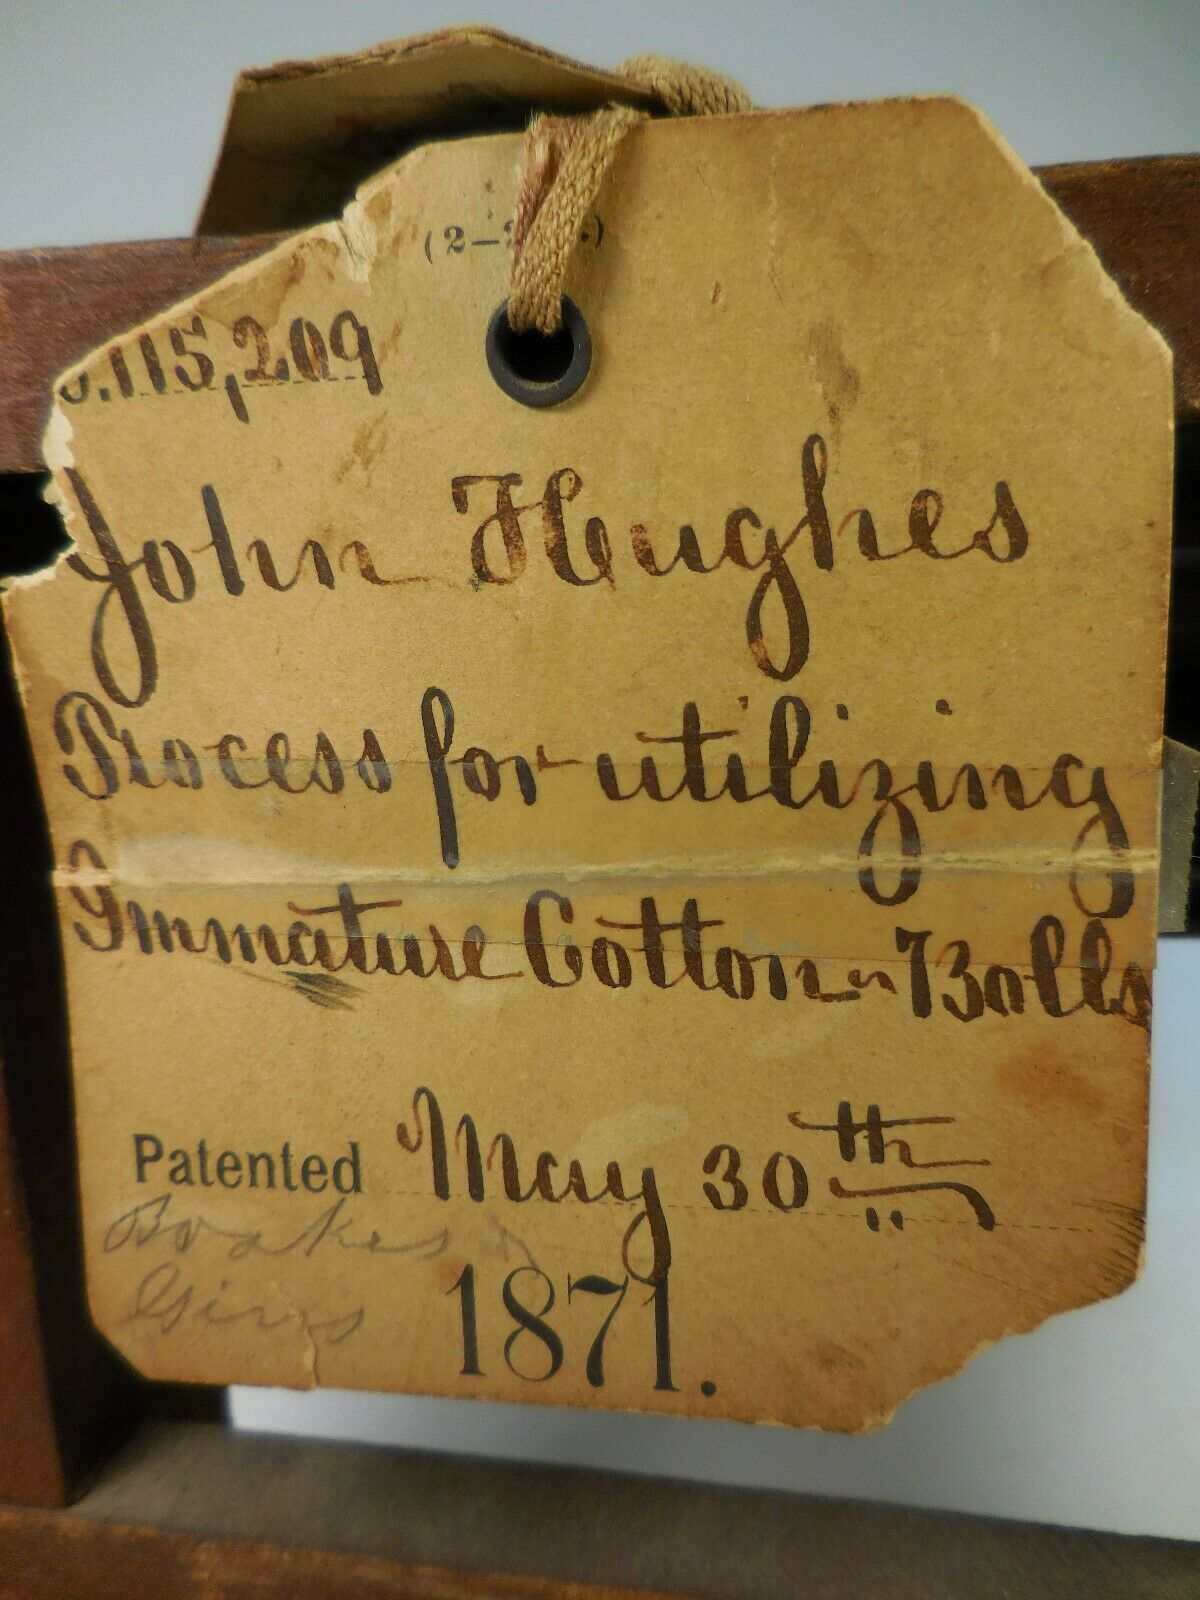 (2-
.115,209
John Hughes
Process for utilizing
Immature Cotton-Bolls
Patented May 30th
1871.